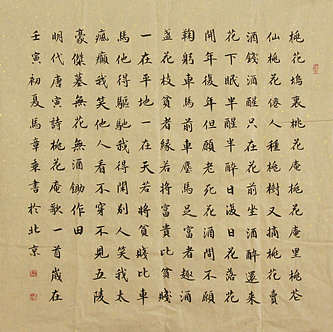 桃花塢裏桃花庵桃花庵里桃花
仙桃花僊人種桃樹又摘桃花賣
酒錢酒醒只在花前坐酒醉還來
花下眠半醒半醉日復日花落花
開年復年但願老死花酒間不願
鞠躬車馬前車塵馬足富者趣酒
盞花枝貧者緣若將富貴比貧賤
一在平地一在天若將貧賤比車
馬他得驅馳我得閒別人笑我太
瘋癲我笑他人看不穿不見五陵
豪傑墓無花無酒鋤作田
明代唐寅詩桃花庵歌一首歲在
壬寅初夏馬章乘書於北京